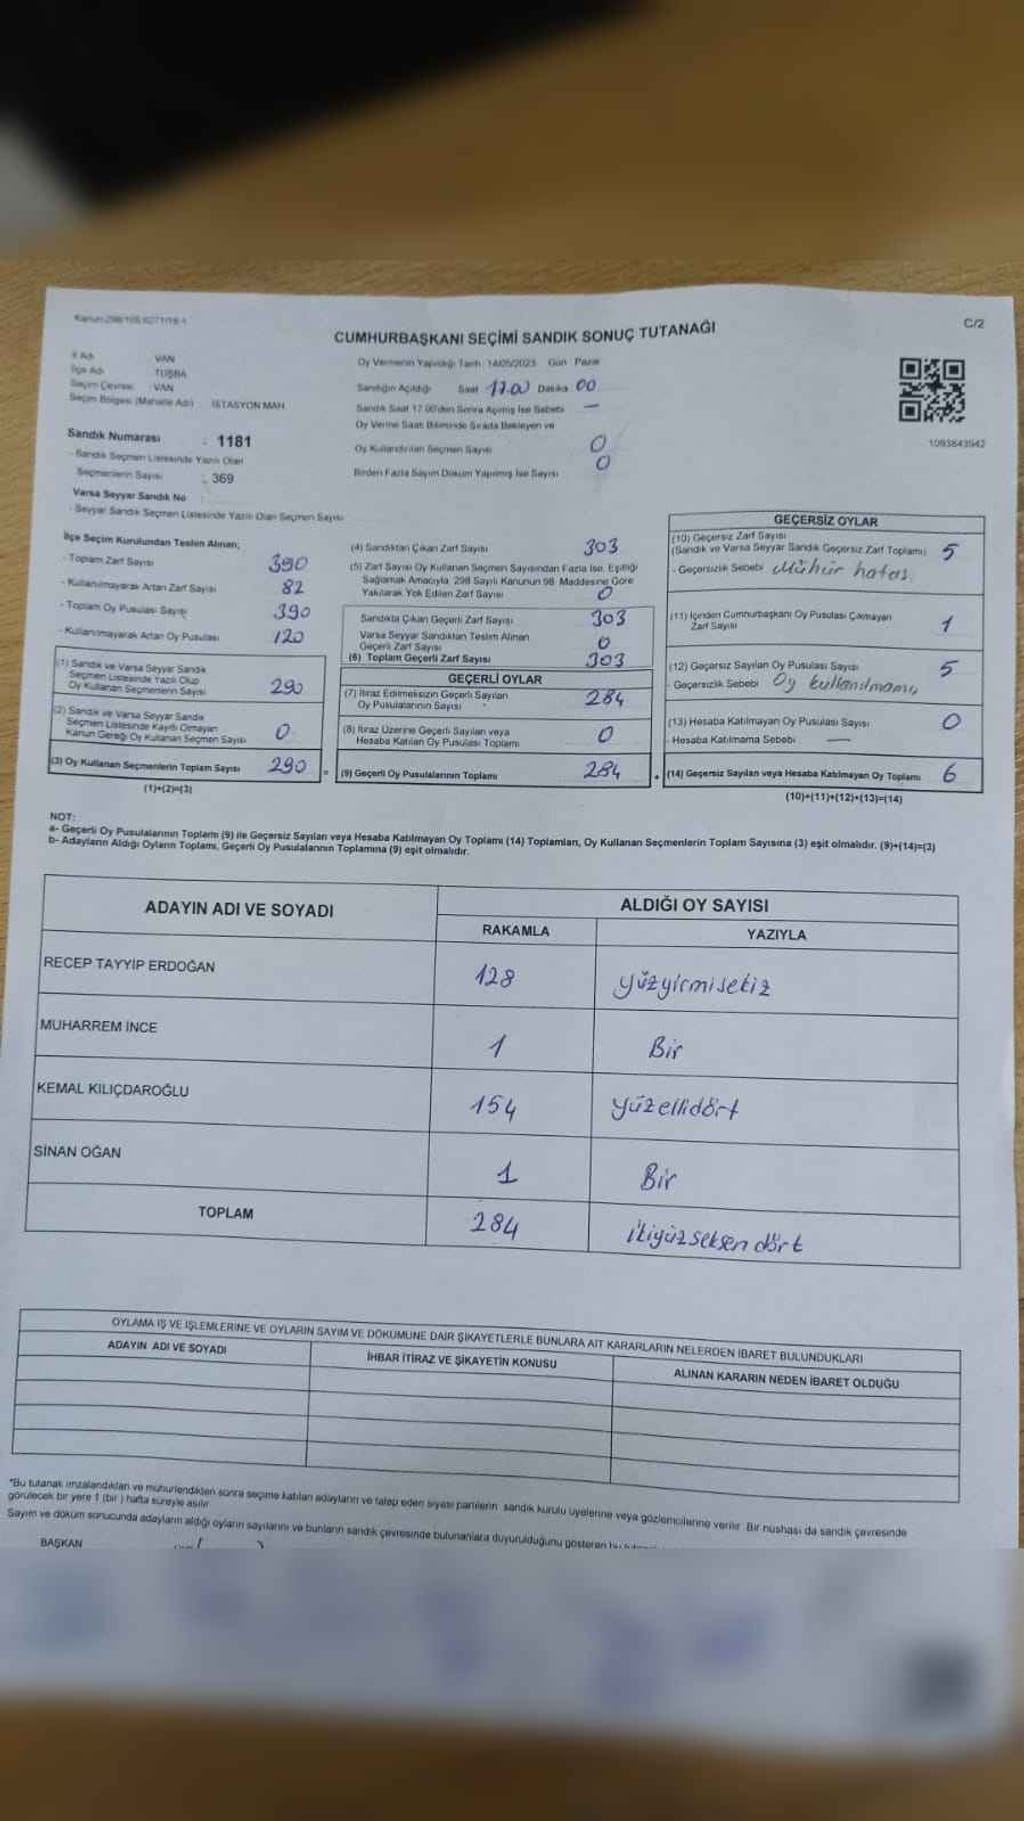 Kanun:298/105,6271/19-1
C/2
CUMHURBAŞKANI SEÇİMİ SANDIK SONUÇ TUTANAĞI
İl Adı VAN
İlçe Adı TUŞBA
Seçim Çevresi VAN
Seçim Bölgesi (Mahalle Adı) İSTASYON MAH.
Sandık Numarası : 1181
- Sandık Seçmen Listesinde Yazılı Olan
Seçmenlerin Sayısı : 369
Varsa Seyyar Sandık No
- Seyyar Sandık Seçmen Listesinde Yazılı Olan Seçmen Sayısı
Oy Vermenin Yapıldığı Tarih 14/05/2023 Gün Pazar
Sandığın Açıldığı Saat 17.00 Dakika 00
Sandık Saat 17.00'den Sonra Açılmış İse Sebebi —
Oy Verme Saati Bitiminde Sırada Bekleyen ve
Oy Kullandırılan Seçmen Sayısı 0
Birden Fazla Sayım Döküm Yapılmış İse Sayısı 0
1093843942
İlçe Seçim Kurulundan Teslim Alınan;
- Toplam Zarf Sayısı 390
- Kullanılmayarak Artan Zarf Sayısı 82
- Toplam Oy Pusulası Sayısı 390
- Kullanılmayarak Artan Oy Pusulası 120
(1) Sandık ve Varsa Seyyar Sandık
Seçmen Listesinde Yazılı Olup
Oy Kullanan Seçmenlerin Sayısı 290
(2) Sandık ve Varsa Seyyar Sandık
Seçmen Listesinde Kayıtlı Olmayan
Kanun Gereği Oy Kullanan Seçmen Sayısı 0
(3) Oy Kullanan Seçmenlerin Toplam Sayısı 290 =
(1)+(2)=(3)
(4) Sandıktan Çıkan Zarf Sayısı 303
(5) Zarf Sayısı Oy Kullanan Seçmen Sayısından Fazla İse, Eşitliği
Sağlamak Amacıyla 298 Sayılı Kanunun 98. Maddesine Göre
Yakılarak Yok Edilen Zarf Sayısı 0
Sandıkta Çıkan Geçerli Zarf Sayısı 303
Varsa Seyyar Sandıktan Teslim Alınan
Geçerli Zarf Sayısı 0
(6) Toplam Geçerli Zarf Sayısı 303
GEÇERLİ OYLAR
(7) İtiraz Edilmeksizin Geçerli Sayılan
Oy Pusulalarının Sayısı 284
(8) İtiraz Üzerine Geçerli Sayılan veya
Hesaba Katılan Oy Pusulası Toplamı 0
(9) Geçerli Oy Pusulalarının Toplamı 284
GEÇERSİZ OYLAR
(10) Geçersiz Zarf Sayısı
(Sandık ve Varsa Seyyar Sandık Geçersiz Zarf Toplamı) 5
- Geçersizlik Sebebi Mühür hatas
(11) İçinden Cumhurbaşkanı Oy Pusulası Çıkmayan
Zarf Sayısı 1
(12) Geçersiz Sayılan Oy Pusulası Sayısı 5
- Geçersizlik Sebebi Oy kullanılmamış
(13) Hesaba Katılmayan Oy Pusulası Sayısı 0
- Hesaba Katılmama Sebebi —
(14) Geçersiz Sayılan veya Hesaba Katılmayan Oy Toplamı 6
(10)+(11)+(12)+(13)=(14)
NOT:
a- Geçerli Oy Pusulalarının Toplamı (9) ile Geçersiz Sayılan veya Hesaba Katılmayan Oy Toplamı (14) Toplamları, Oy Kullanan Seçmenlerin Toplam Sayısına (3) eşit olmalıdır. (9)+(14)=(3)
b- Adayların Aldığı Oyların Toplamı, Geçerli Oy Pusulalarının Toplamına (9) eşit olmalıdır.
ADAYIN ADI VE SOYADI ALDIĞI OY SAYISI
RAKAMLA YAZIYLA
RECEP TAYYİP ERDOĞAN 128 yüzyirmisekiz
MUHARREM İNCE 1 Bir
KEMAL KILIÇDAROĞLU 154 yüzellidört
SİNAN OĞAN 1 Bir
TOPLAM 284 ikiyüzseksen dört
OYLAMA İŞ VE İŞLEMLERİNE VE OYLARIN SAYIM VE DÖKÜMÜNE DAİR ŞİKAYETLERLE BUNLARA AİT KARARLARIN NELERDEN İBARET BULUNDUKLARI
ADAYIN ADI VE SOYADI İHBAR İTİRAZ VE ŞİKAYETİN KONUSU ALINAN KARARIN NEDEN İBARET OLDUĞU
*Bu tutanak imzalandıktan ve mühürlendikten sonra seçime katılan adayların ve talep eden siyasi partilerin sandık kurulu üyelerine veya gözlemcilerine verilir. Bir nüshası da sandık çevresinde
görülecek bir yere 1 (bir) hafta süreyle asılır.
Sayım ve döküm sonucunda adayların aldığı oyların sayılarını ve bunların sandık çevresinde bulunanlara duyurulduğunu gösteren bu
BAŞKAN